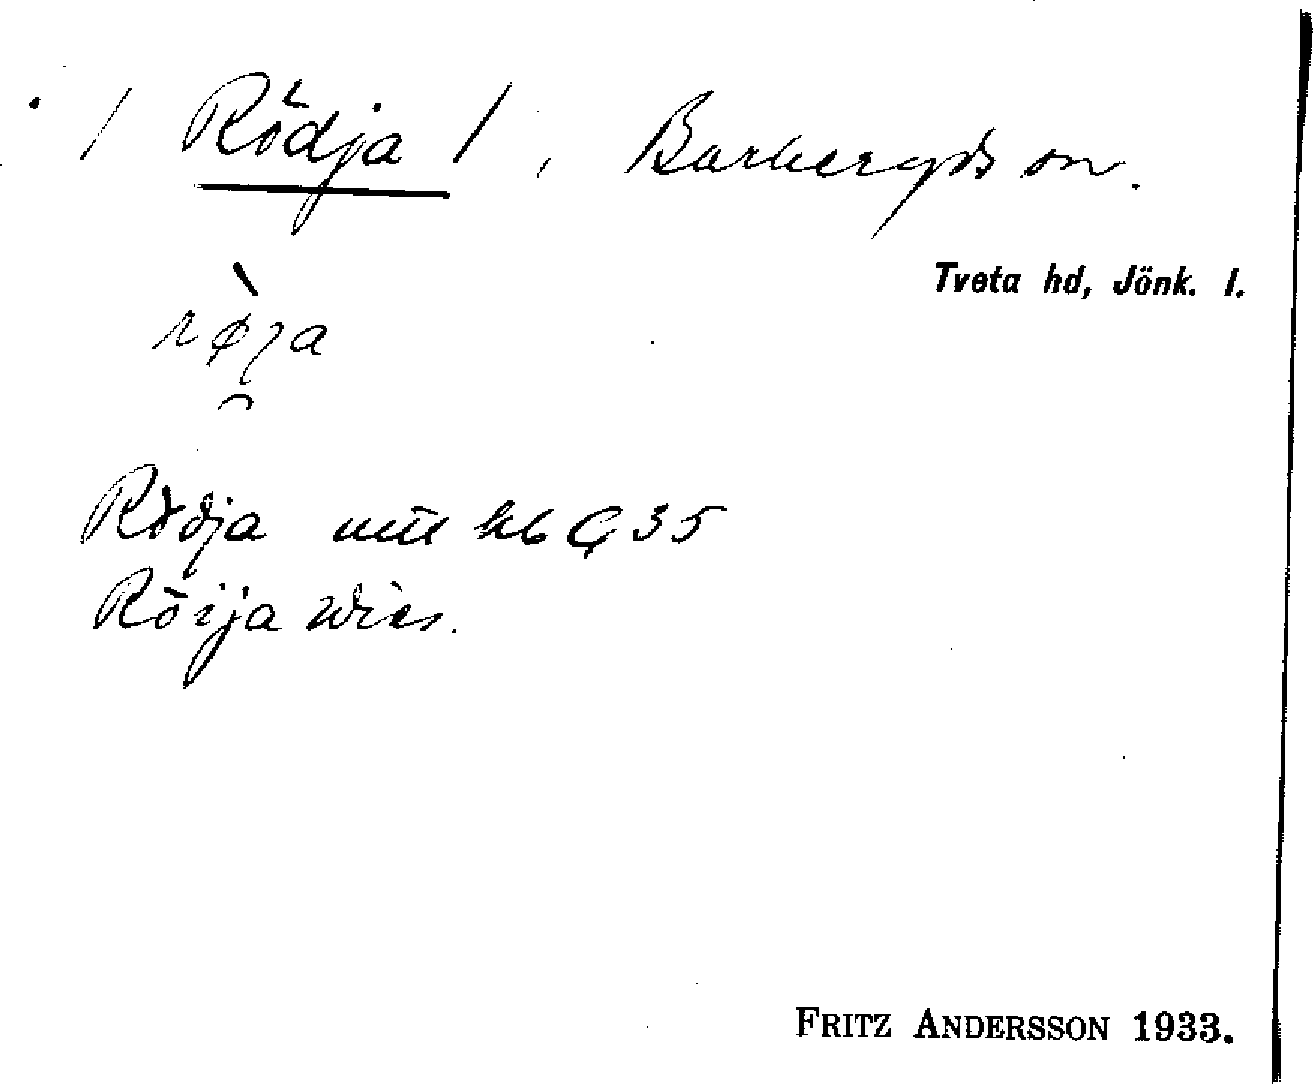 / Rödja /, Barkeryds sn.
Tveta hd, Jönk. l.
røja
Rödja
Röija Wies.
FRITZ ANDERSSON 1933.